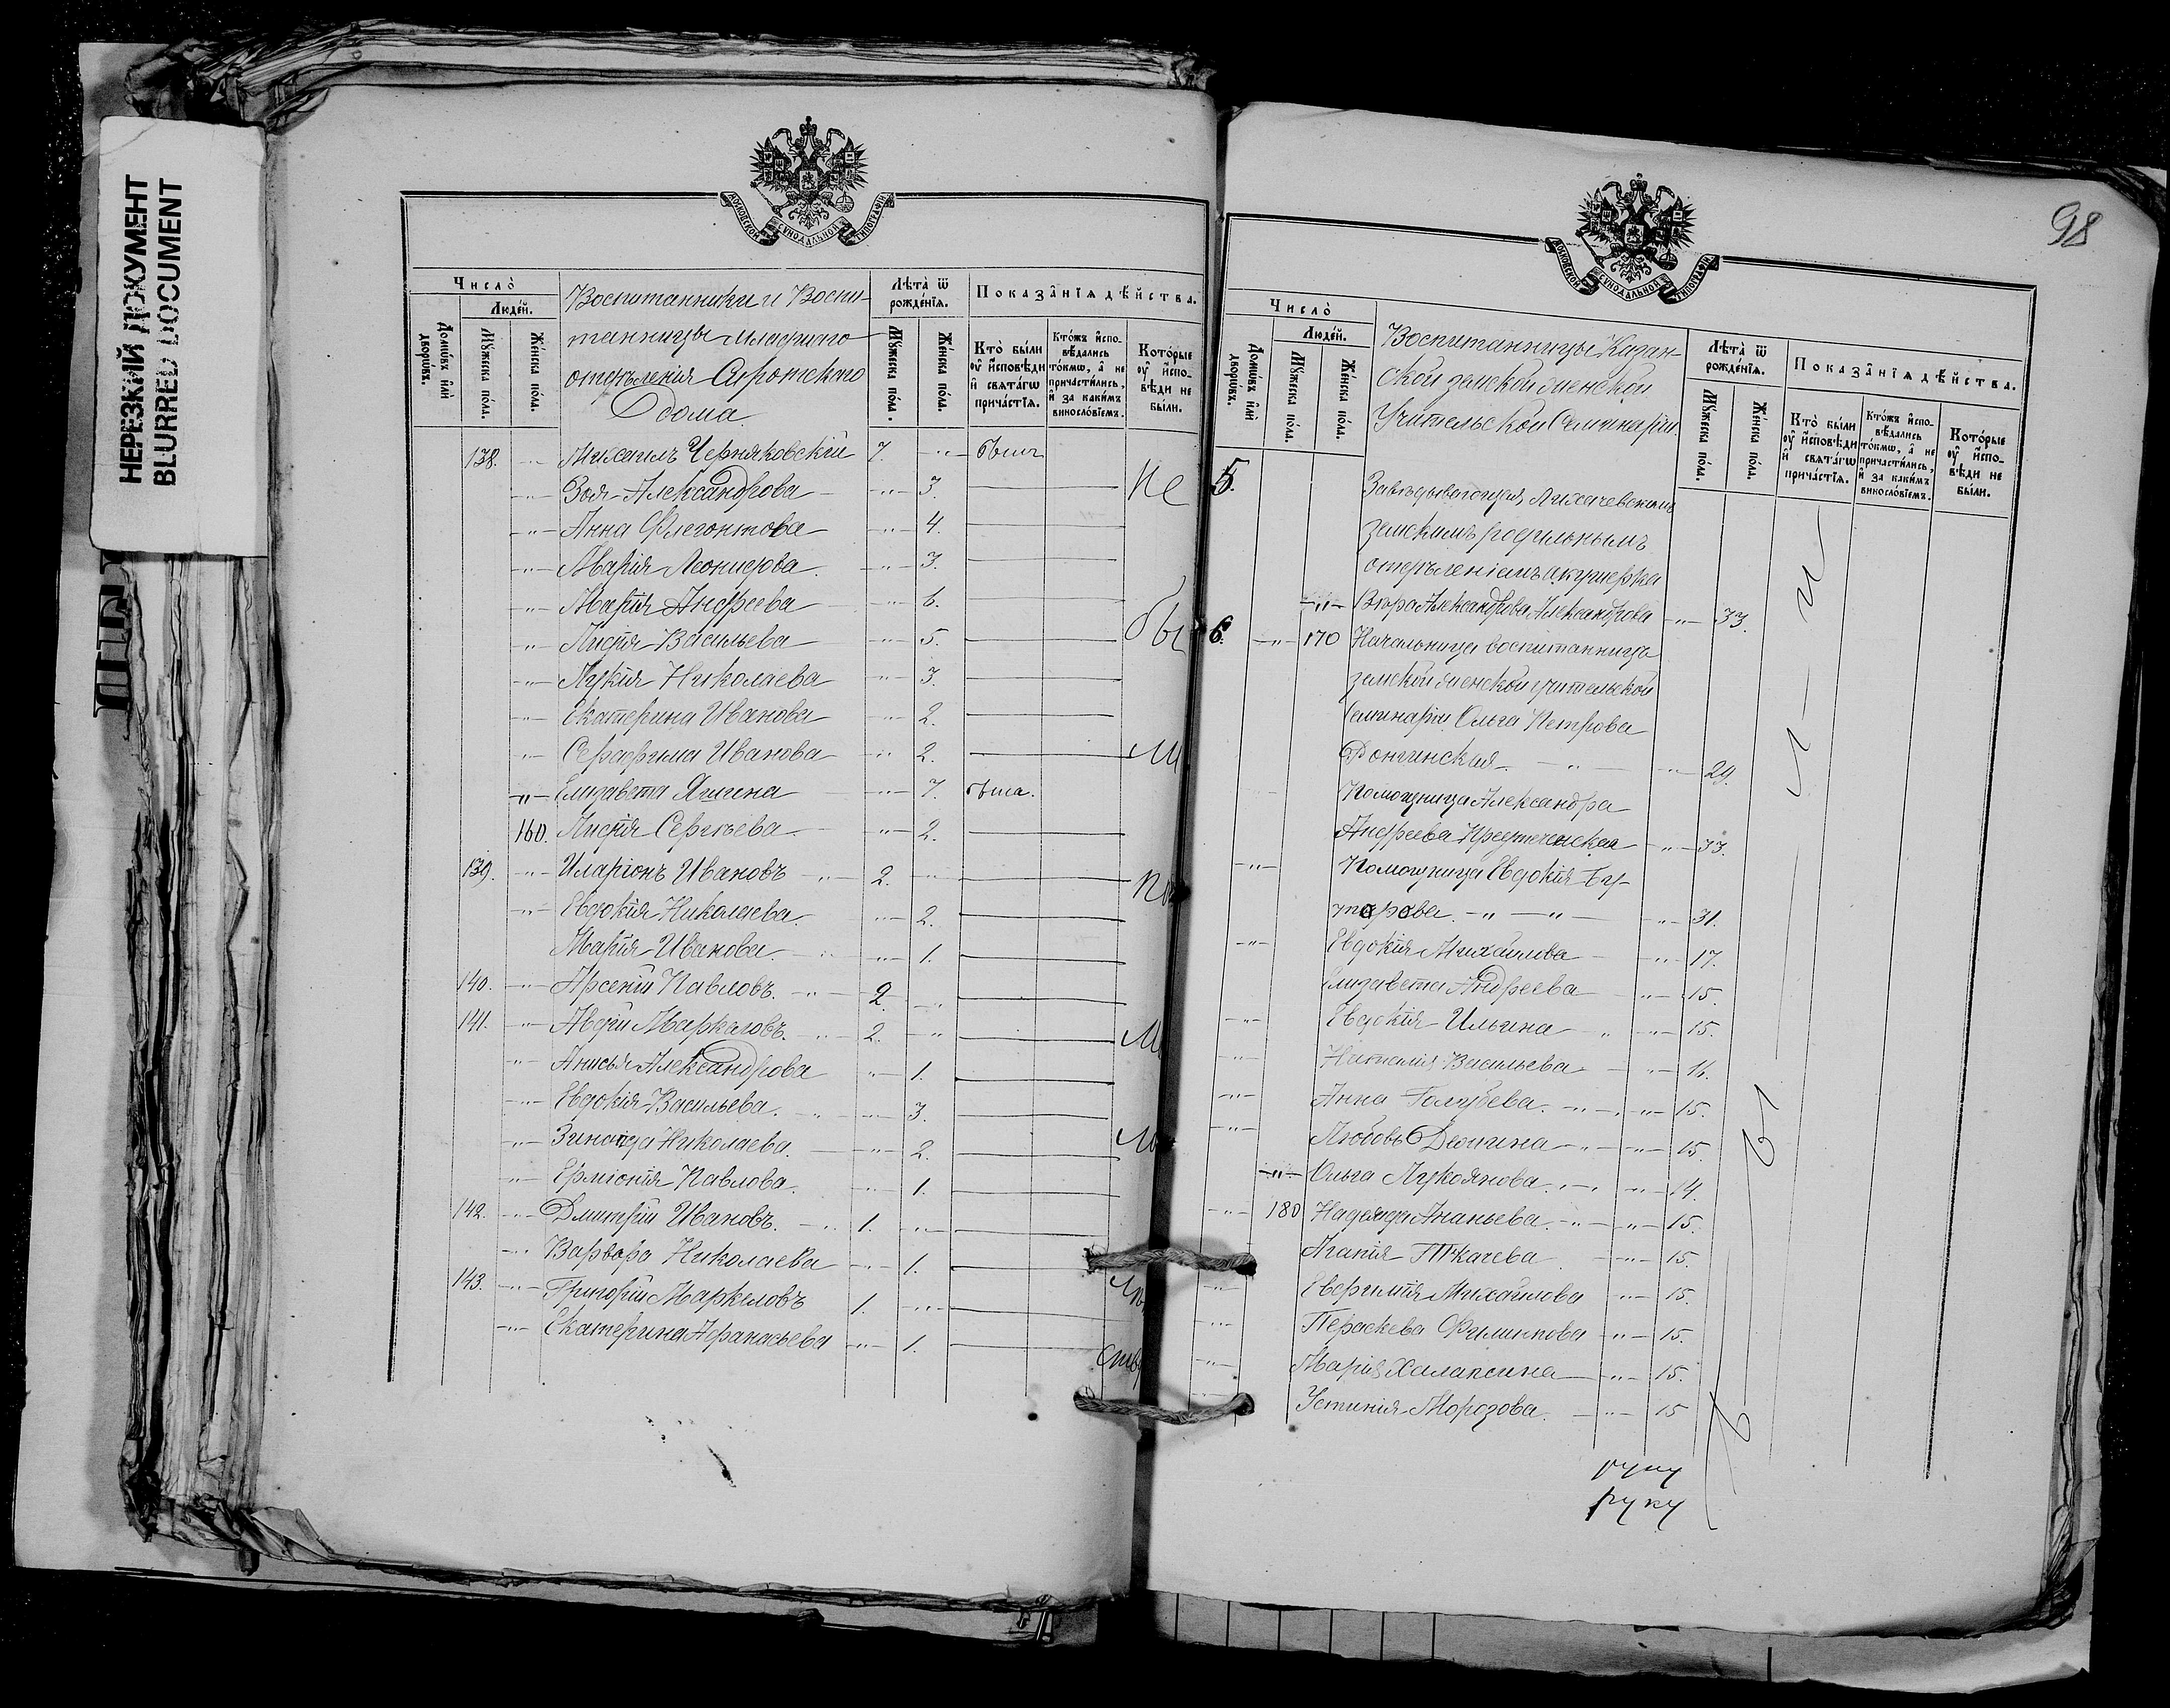 НЕРЕЗКИЙ ДОКУМЕНТ
BLURRED DOCUMENT
МОСКОВСКОЙ СѴНОДАЛЬНОЙ ТИПОГРАФІИ
Число̀
Людей.
Домѡвъ или дворѡвъ.
Мꙋжеска пола.
Женска пола.
Воспитанники и Воспи-
танницы младшаго
отдѣленія Сиротскаго
дома
Лѣта̀ ѿ рожденїѧ.
Мꙋжеска пола.
Женска пола.
Показанїѧ дѣйства.
Кто̀ были оу҆ исповѣди и свѧтагѡ причастїѧ.
Ктожъ исповѣдались токмѡ, а не причастились, и за какимъ винословїемъ.
Которые оу҆ исповѣди не были.
138. -"- Михаилъ Черняковскій 7. -"- былъ
-"- Зоя Александрова -"- 3.
Не
-"- Анна Флегонтова -"- 4.
-"- Марія Леонидова -"- 3.
-"- Марія Андреева -"- 6.
-"- Лидія Васильева -"- 5.
бы
-"- Лукія Николаева -"- 3.
-"- Екатерина Иванова -"- 2.
-"- Серафима Иванова -"- 2.
-"- Елизавета Яшина -"- 7. была.
160. Лидія Сергѣева -"- 2.
139. -"- Иларіонъ Ивановъ -"- 2. -"-
-"- Евдокія Николаева. -"- 2.
Марія Иванова. -"- 1.
140. -"- Арсеній Павловъ. -"- 2. -"-
141. -"- Авдій Маркаловъ. -"- 2. -"-
-"- Анисья Александрова -"- 1.
-"- Евдокія Васильева. -"- 3.
-"- Зинаида Николаева. -"- 2.
-"- Ерміонія Павлова. -"- 1.
142. -"- Дмитрій Ивановъ. -"- 1. -"-
-"- Варвара Николаева -"- 1.
143. -"- Григорій Маркеловъ 1. -"-
-"- Екатерина Афанасьева -"- 1.
98
МОСКОВСКОЙ СѴНОДАЛЬНОЙ ТИПОГРАФІИ
Число̀
Людей.
Домѡвъ или дворѡвъ.
Мꙋжеска пола.
Женска пола.
Воспитанницы Казан-
ской земской женской
Учительской Семинаріи.
Лѣта̀ ѿ рожденїѧ.
Мꙋжеска пола.
Женска пола.
Показанїѧ дѣйства.
Кто̀ были оу҆ исповѣди и свѧтагѡ причастїѧ.
Ктожъ исповѣдались токмѡ, а не причастились, и за какимъ винословїемъ.
Которые оу҆ исповѣди не были.
5. Завѣдывающая Лихачевскимъ
земскимъ родильнымъ
отдѣленіемъ акушерка
-"- Вѣра Александрова Александрова -"- 33.
6. -"- 170 Начальница воспитанница
земской женской учительской
Семинаріи Ольга Петрова
Донгинская -"- -"- 29.
Помощница Александра
Андреева Предтеченская -"- 33.
-"- Помощница Евдокія Бу-
торова. -"- -"- -"- 31.
-"- Евдокія Михайлова -"- 17.
Елизавета Андреева -"- 15.
-"- Евдокія Ильина -"- -"- 15.
-"- Наталія Васильева -"- 16.
-"- Анна Голубева. -"- -"- 15.
-"- Любовь Демина -"- -"- 15.
-"- Ольга Лукоянова. -"- -"- 14.
-"- 180 Надежда Ананьева. -"- -"- 15.
Агапія Ткачева -"- 15.
-"- Евфимія Михайлова -"- 15.
-"- Параскева Филиппова -"- 15.
-"- Марія Халапсина -"- 15.
-"- Устинія Морозова. -"- 15
руку
руку